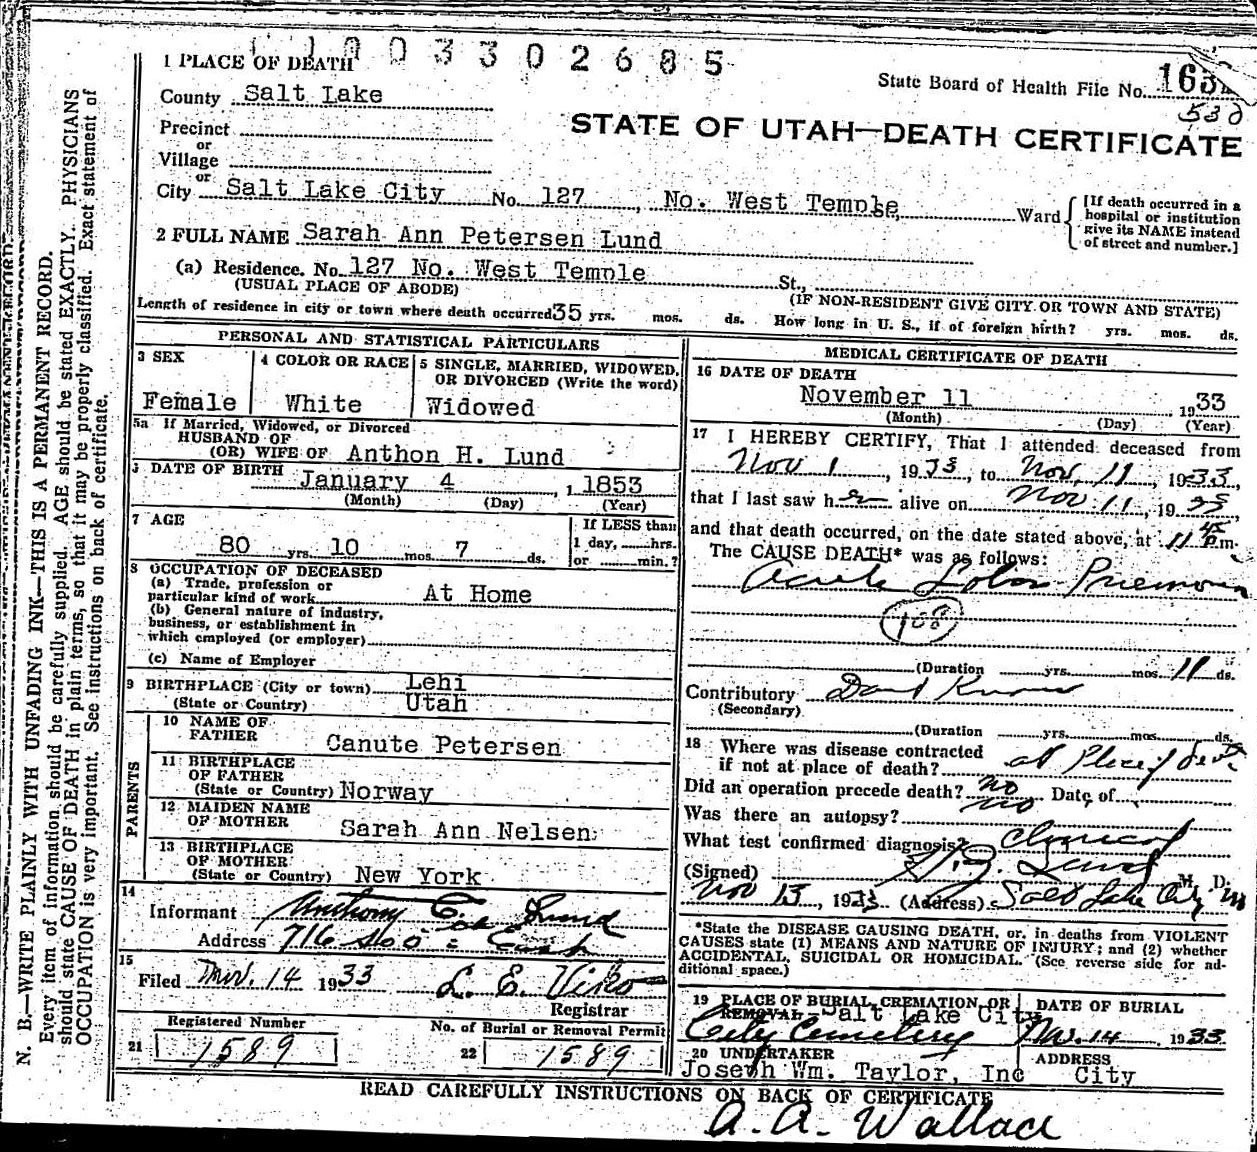 0 0 3 3 0 2 6 8 5
1 PLACE OF DEATH
State Board of Health File No.
530
County Salt Lake
STATE OF UTAH—DEATH CERTIFICATE
Precinct
or
Village
or
City Salt Lake City No. 127, No. West Temple Ward
[If death occurred in a hospital or institution give its NAME instead of street and number.]
2 FULL NAME Sarah Ann Petersen Lund
(a) Residence. No. 127 No. West Temple St.,
(USUAL PLACE OF ABODE) (IF NON-RESIDENT GIVE CITY OR TOWN AND STATE)
Length of residence in city or town where death occurred 35 yrs. mos. ds. How long in U. S., if of foreign birth? yrs. mos. ds.
PERSONAL AND STATISTICAL PARTICULARS
3 SEX
Female
4 COLOR OR RACE
White
5 SINGLE, MARRIED, WIDOWED,
OR DIVORCED (Write the word)
Widowed
5a If Married, Widowed, or Divorced
HUSBAND OF
(OR) WIFE OF Anthon H. Lund
DATE OF BIRTH
January 4, 1853
(Month) (Day) (Year)
7 AGE
80 yrs. 10 mos. 7 ds.
If LESS than
1 day, hrs.
or min.?
8 OCCUPATION OF DECEASED
(a) Trade, profession or
particular kind of work At Home
(b) General nature of industry,
business, or establishment in
which employed (or employer)
(c) Name of Employer
9 BIRTHPLACE (City or town) Lehi
(State or Country) Utah
PARENTS
10 NAME OF
FATHER Canute Petersen
11 BIRTHPLACE
OF FATHER
(State or Country) Norway
12 MAIDEN NAME
OF MOTHER Sarah Ann Nelsen
13 BIRTHPLACE
OF MOTHER
(State or Country) New York
14
Informant Anthony C. Lund
Address 716 So. East
15
Filed Nov. 14 1933 L. E. Viko
Registrar
Registered Number
21 1589
No. of Burial or Removal Permit
22 1589
MEDICAL CERTIFICATE OF DEATH
16 DATE OF DEATH
November 11, 1933
(Month) (Day) (Year)
17 I HEREBY CERTIFY, That I attended deceased from
Nov 1, 1933, to Nov, 11, 1933
that I last saw her alive on Nov. 11, 1933,
and that death occurred, on the date stated above, at 11 45 Pm.
The CAUSE DEATH* was as follows:
Acute Lobar Pneumonia
108
(Duration yrs. mos. 11 ds.
Contributory Don't Know
(Secondary)
(Duration yrs. mos. ds.
18 Where was disease contracted
if not at place of death? at Place of death
Did an operation precede death? no Date of
Was there an autopsy? no
What test confirmed diagnosis? Clinical
(Signed) Lund M. D.
Nov 13, 1933 (Address) Salt Lake City
*State the DISEASE CAUSING DEATH, or, in deaths from VIOLENT
CAUSES state (1) MEANS AND NATURE OF INJURY; and (2) whether
ACCIDENTAL, SUICIDAL OR HOMICIDAL. (See reverse side for ad-
ditional space.)
19 PLACE OF BURIAL, CREMATION, OR
REMOVAL Salt Lake City
City Cemetery
DATE OF BURIAL
Nov. 14, 1933
20 UNDERTAKER
Joseph Wm. Taylor, Inc
ADDRESS
City
READ CAREFULLY INSTRUCTIONS ON BACK OF CERTIFICATE
A. A. Wallace
N. B.—WRITE PLAINLY WITH UNFADING INK—THIS IS A PERMANENT RECORD.
Every item of information should be carefully supplied. AGE should be stated EXACTLY. PHYSICIANS
should state CAUSE OF DEATH in plain terms, so that it may be properly classified. Exact statement of
OCCUPATION is very important. See instructions on back of certificate.